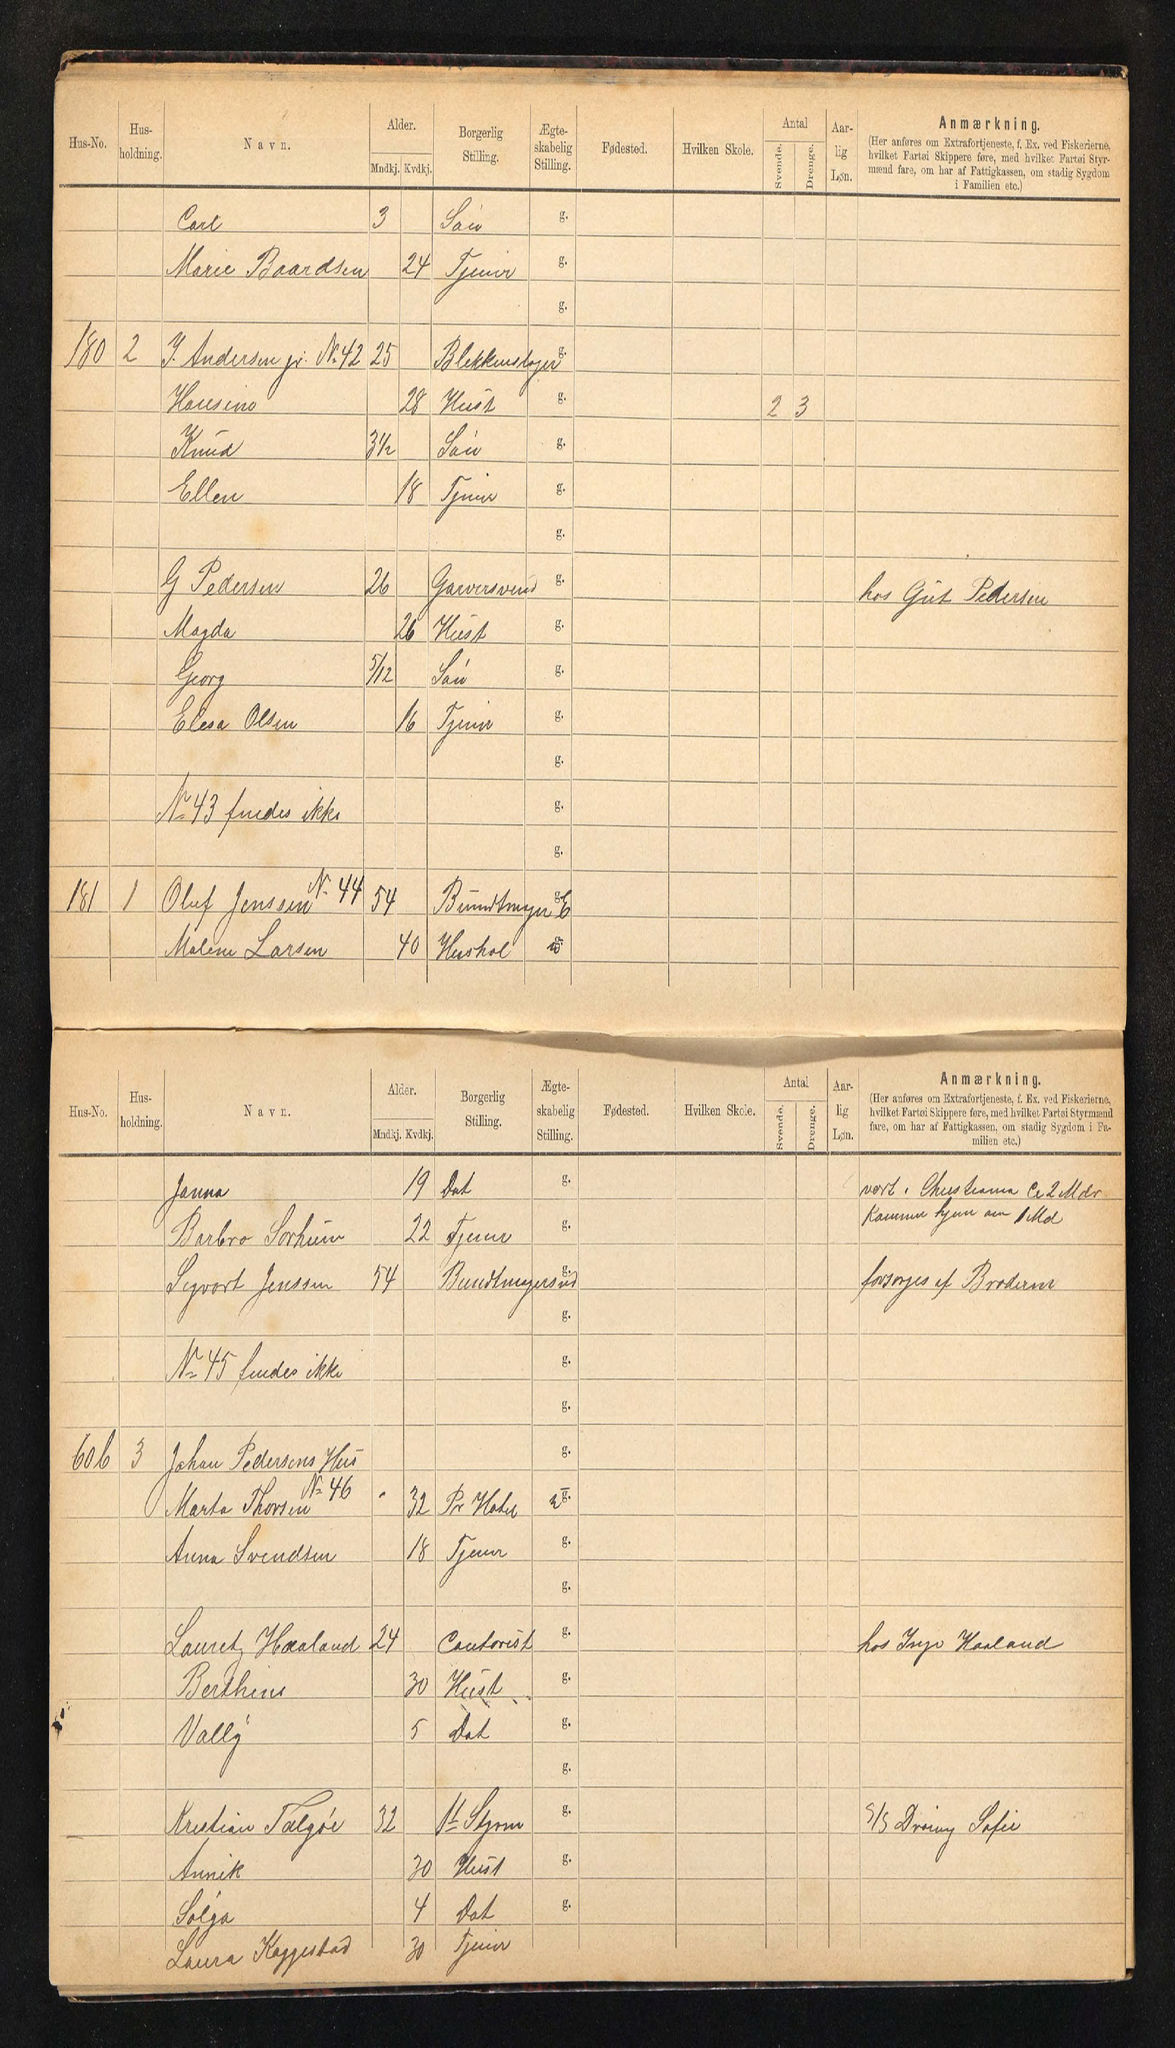 Hus-No. Hus-holdning. Navn. Alder. Mndkj. Kvdkj. Borgerlig Stilling. Ægte-skabelig Stilling. Fødested. Hvilken Skole. Antal Svende. Drenge. Aar-lig Løn. Anmærkning.
(Her anføres om Extrafortjeneste, f. Ex. ved Fiskerierne,
hvilket Fartøi Skippere føre, med hvilket Fartøi Styr-
mænd fare, om har af Fattigkassen, om stadig Sygdom
i Familien etc.)
Carl 3 Søn g.
Marie Baardsen 24 Tjener g.
g.
180 2 J. Andersen jr. No 42 25 Blikkenslager g.
Hansine 28 Hust g. 2 3
Knud 3 1/2 Søn g.
Ellen 18 Tjener g.
g.
G Pedersen 26 Garversvend g. hos Gut Pedersen
Magda 26 Hust g.
Georg 5/12 Søn g.
Elesa Olsen 16 Tjener g.
g.
No 43 findes ikke g.
g.
181 1 Oluf Jenssen No 44 54 Bundtmager g. E
Malene Larsen 40 Hushol g.
Hus-No. Hus-holdning. Navn. Alder. Mndkj. Kvdkj. Borgerlig Stilling. Ægte-skabelig Stilling. Fødested. Hvilken Skole. Antal Svende. Drenge. Aar-lig Løn. Anmærkning.
(Her anføres om Extrafortjeneste, f. Ex. ved Fiskerierne,
hvilket Fartøi Skippere føre, med hvilket Fartøi Styrmænd
fare, om har af Fattigkassen, om stadig Sygdom i Fa-
milien etc.)
Janna 19 Dat g. vært i Christiania Ca 2 Mdr
Barbro Sørhuim 22 Tjener g. Kommer hjem om 1 Md
Sigvart Jenssen 54 Bundtmagersvd g. forsørges af Broderen
g.
No 45 findes ikke g.
g.
606 3 Johan Pedersens Hus g.
Marta Thorsen No 46 32 Pr Hotel g.
Anna Svendsen 18 Tjener g.
g.
Lauretz Haaland 24 Contorist g. hos Inge Haaland
Berthine 30 Hust g.
Vally 5 Dat g.
g.
Kristian Talgøe 32 1st Styrm g. S/S Droning Sofie
Annik 30 Hust g.
Solga 4 Dat g.
Laura Kaggestad 30 Tjener